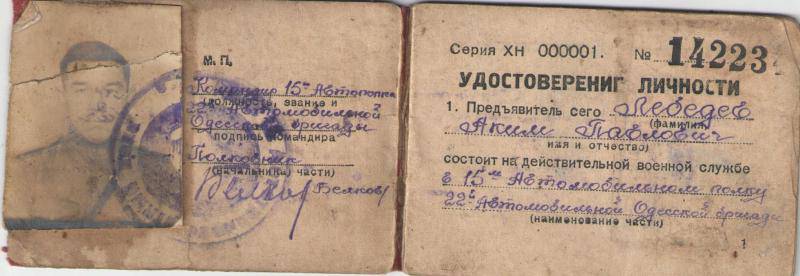 М. П.
Командир 15го Автополка
(должность, звание и
22й Автомобильной
Одесской бригады
подпись командира
Полковник
(начальника) части)
(Белков)
Серия ХН 000001. № 14223
УДОСТОВЕРЕНИЕ ЛИЧНОСТИ
1. Предъявитель сего Лебедев
(фамилия)
Аким Павлович
имя и отчество)
состоит на действительной военной службе
в 15м Автомобильном полку
22й Автомобильной Одесской бригады
(наименование части)
1